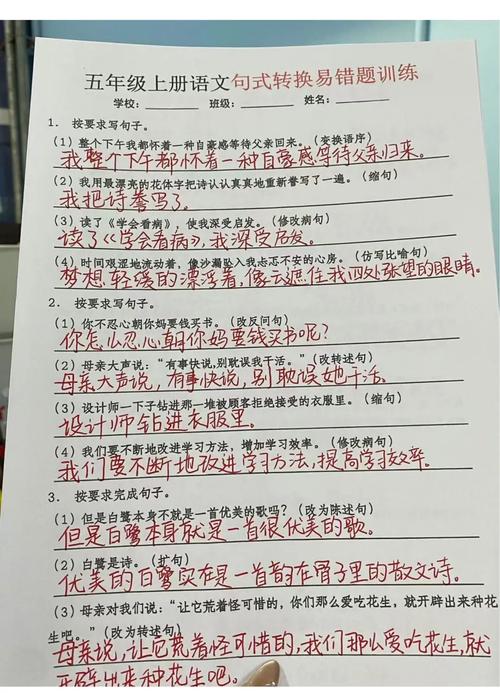 五年级上册语文句式转换易错题训练
学校：________ 班级：________ 姓名：________
1. 按要求写句子。
（1）整个下午我都怀着一种自豪感等待父亲回来。（变换语序）
我整个下午都怀着一种自豪感等待父亲归来。
（2）我用最漂亮的花体字把诗认认真真地重新誊写了一遍。（缩句）
我把诗誊写了。
（3）读了《学会看病》，使我深受启发。（修改病句）
读了《学会看病》，我深受启发。
（4）时间艰涩地流动着，像沙漏坠入我忐忑不安的心房。（仿写比喻句）
梦想轻缓的漂浮着，像云遮住我四处张望的眼睛。
2. 按要求写句子。
（1）你不忍心朝你妈要钱买书。（改反问句）
你怎么忍心朝你妈要钱买书呢？
（2）母亲大声说：“有事快说，别耽误我干活。”（改转述句）
母亲大声说，有事快说，别耽误她干活。
（3）设计师一下子钻进那一堆被顾客拒绝接受的衣服里。（缩句）
设计师钻进衣服里。
（4）我们要不断地改进学习方法，增加学习效率。（修改病句）
我们要不断地改进学习方法，提高学习效率。
3. 按要求完成句子。
（1）但是白鹭本身不就是一首优美的歌吗？（改为陈述句）
但是白鹭本身就是一首很优美的歌。
（2）白鹭是诗。（扩句）
优美的白鹭实在是一首韵在骨子里的散文诗。
（3）母亲对我们说：“让它荒着怪可惜的，你们那么爱吃花生，就开辟出来种花
生吧。”（改为转述句）
母亲说，让它荒着怪可惜的，我们那么爱吃花生，就
开辟出来种花生吧。